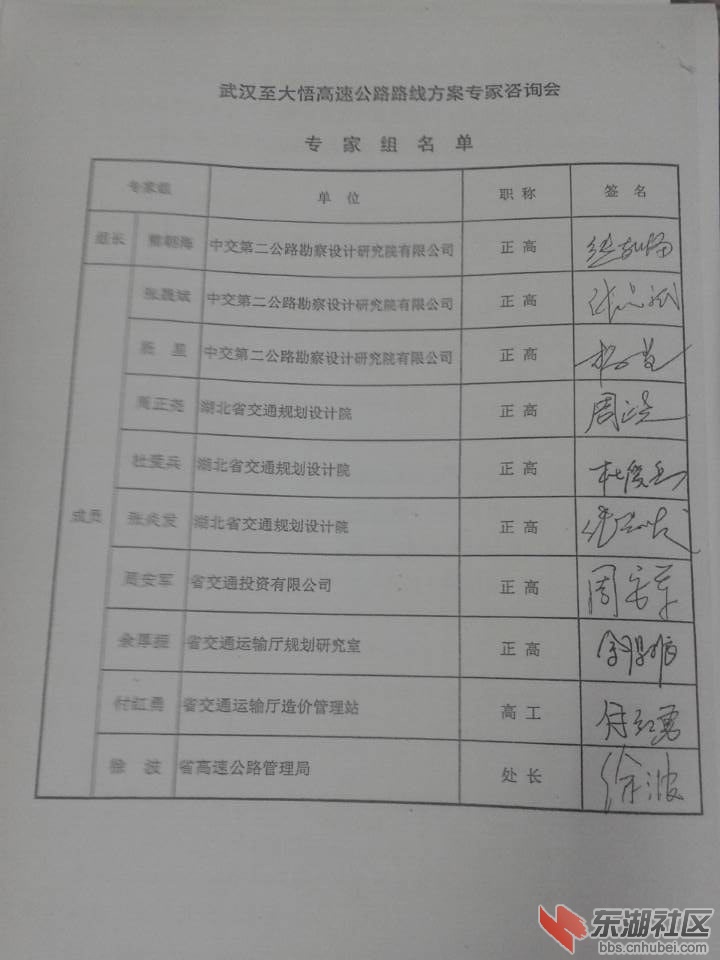 武汉至大悟高速公路路线方案专家咨询会
专家组名单
专家组 单位 职称 签名
组长 中交第二公路勘察设计研究院有限公司 正高
张晟斌 中交第二公路勘察设计研究院有限公司 正高
中交第二公路勘察设计研究院有限公司 正高
周正尧 湖北省交通规划设计院 正高 周正尧
杜爱兵 湖北省交通规划设计院 正高
成员 张炎发 湖北省交通规划设计院 正高
周安军 省交通投资有限公司 正高 周安军
余厚振 省交通运输厅规划研究室 正高 余厚振
付红勇 省交通运输厅造价管理站 高工 付红勇
徐波 省高速公路管理局 处长 徐波
东湖社区
bbs.cnhubei.com